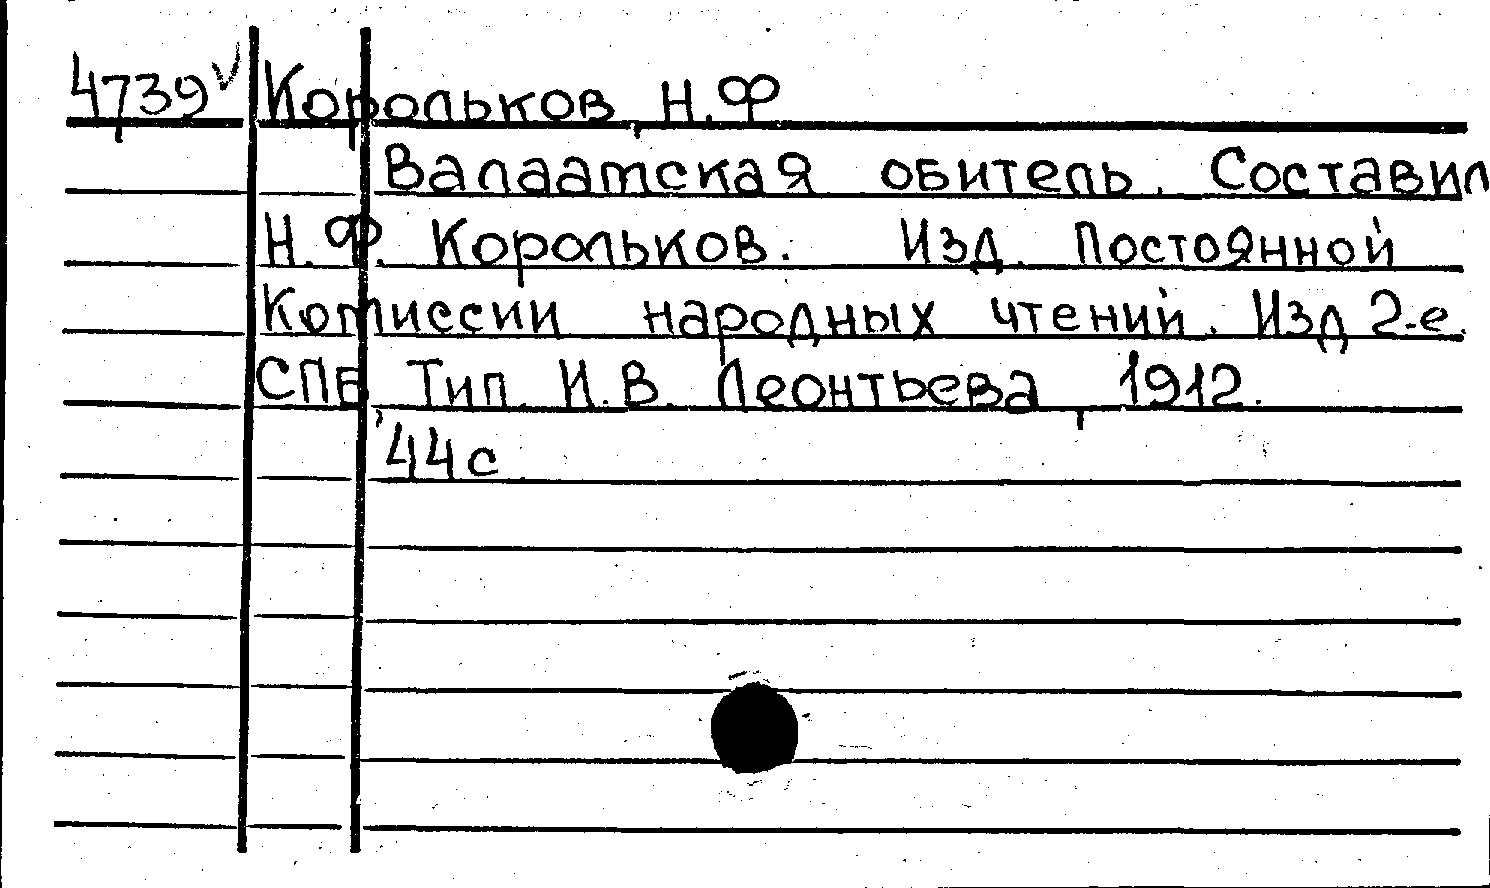 4739 Корольков, Н.Ф
Валаамская обитель. Составил
Н.Ф. Корольков. Изд. Постоянной
Комиссии народных чтений. Изд 2-е.
СПБ, Тип. И.В. Леонтьева, 1912.
44с